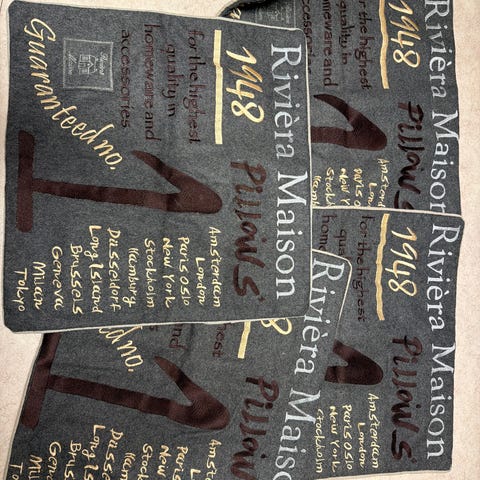 Rivièra Maison
1948
for the highest
quality in
homeware and
accessories
Guaranteed no.
1
Pillows
Amsterdam
London
Paris Oslo
New York
Stockholm
Hamburg
Dusseldorf
Long Island
Brussels
Geneva
Milan
Tokyo
Rivièra Maison
1948
for the highest
quality in
homeware and
accessories
1
Pillows
Amsterdam
Lon
Paris O
New Y
Stock
Rivièra Maison
1948
for the highest
qual
home
Pillows
Amsterdam
London
Paris Oslo
New York
Stockholm
Rivièra Mais
8
hest
eed no.
1
Pillow
Ams
L
Paris
New
Stoc
Ham
Dusse
Long Is
Brus
Gene
Mil
To